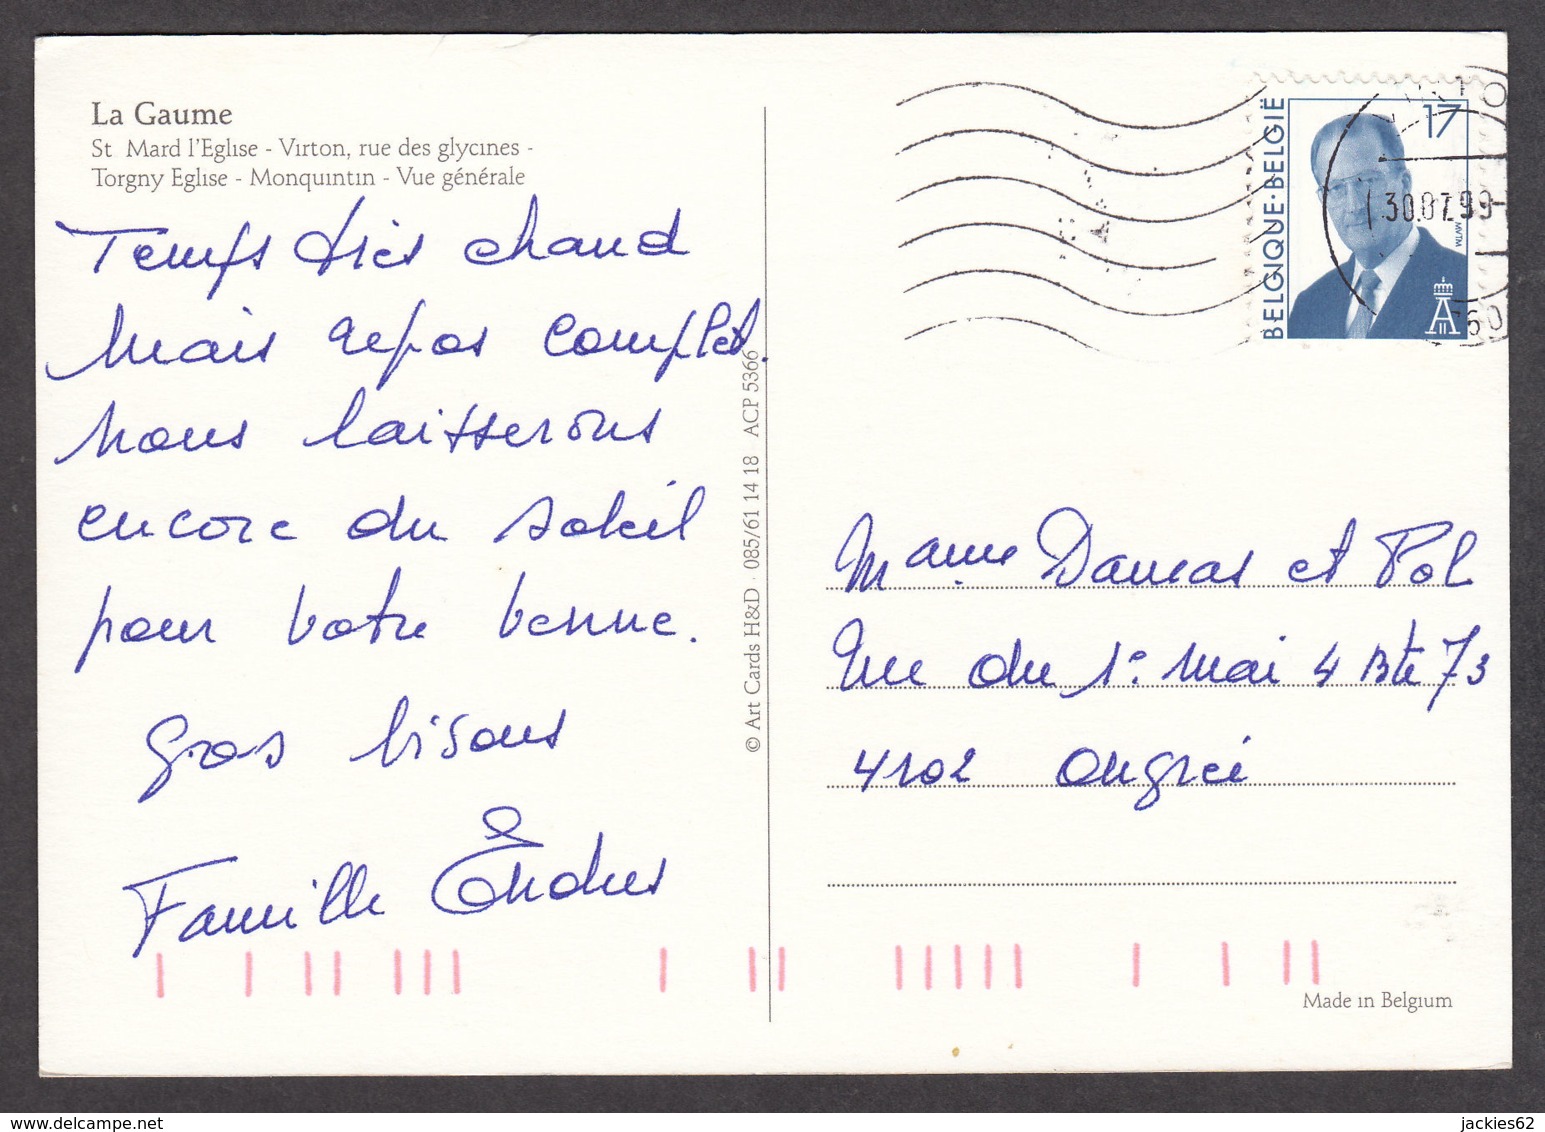 La Gaume
St Mard l'Eglise - Virton, rue des glycines -
Torgny Eglise - Monquintin - Vue générale
Temps très chaud
Mais repos complet.
Nous laisserons
encore du soleil
pour votre venue.
Gros bisous
Famille
© Art Cards H&D · 085/61 14 18 ACP 5366
BELGIQUE·BELGIË
17
MVTM
30.07.99-
Mame Damas et Pol
Rue du 1e Mai 4 Bte 73
4102 Ougrée
Made in Belgium
jackies62